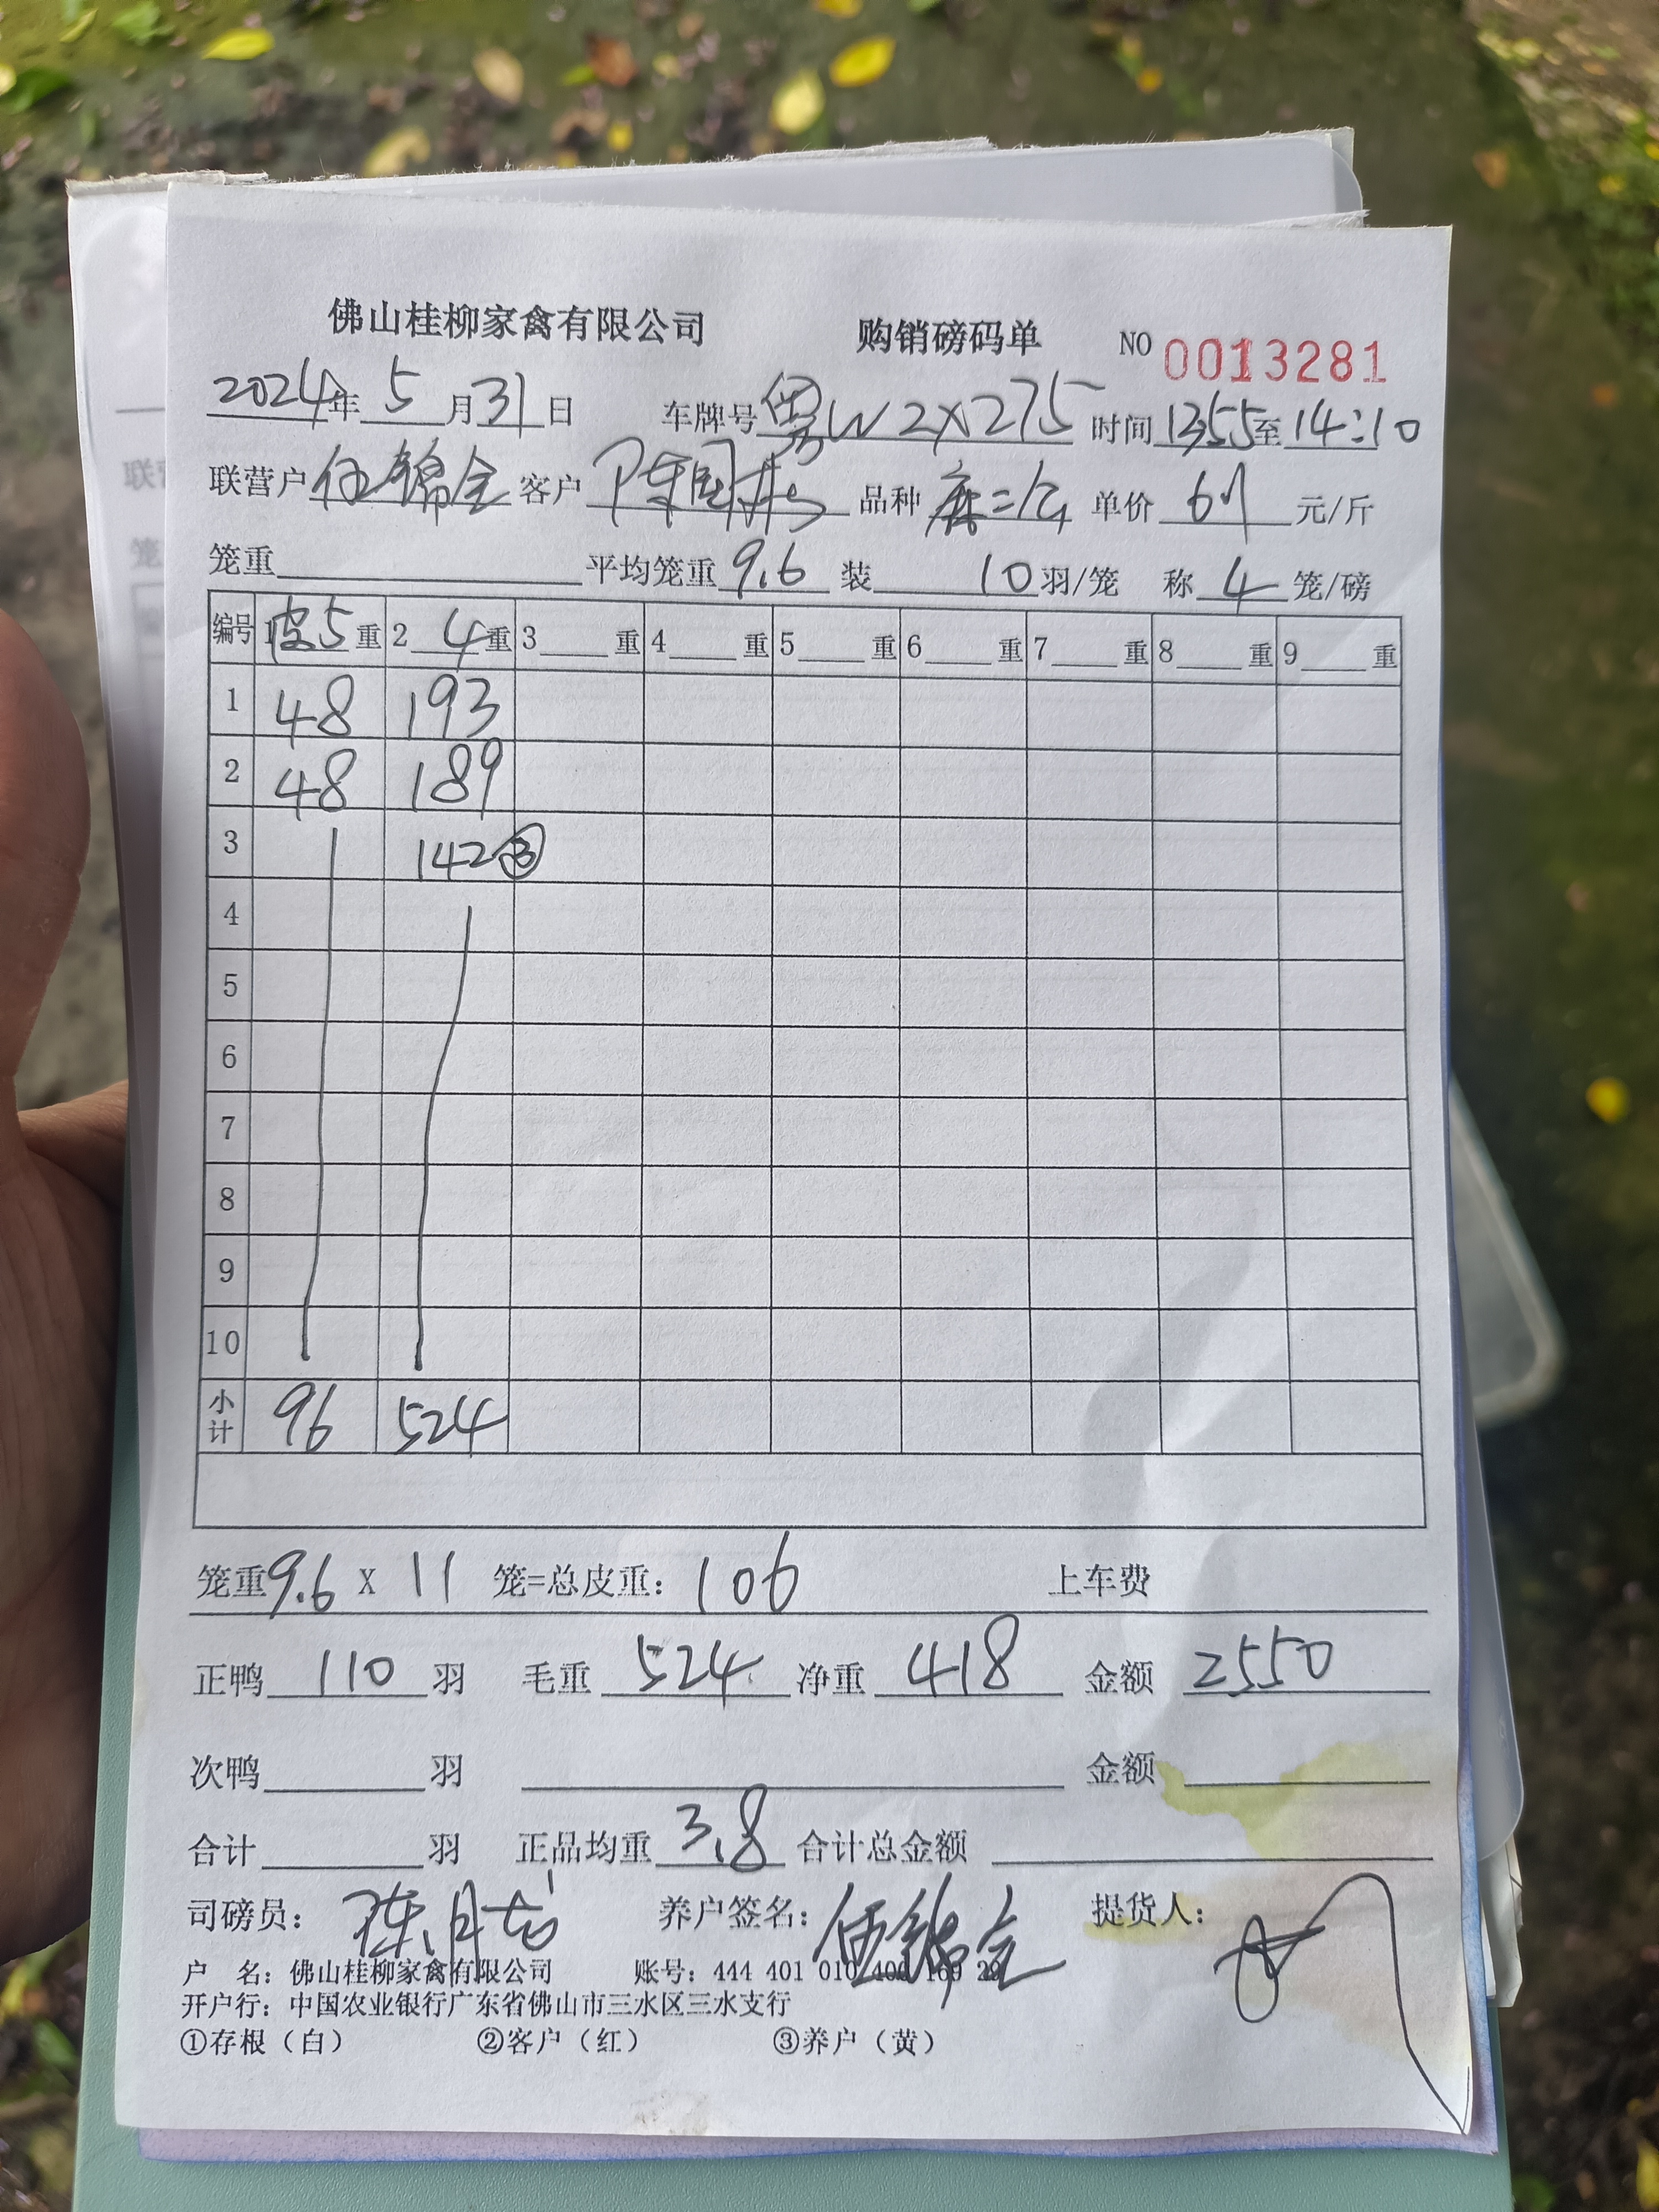 佛山桂柳家禽有限公司 购销磅码单 NO 0013281
2024年 5 月 31 日 车牌号 粤W2X275 时间 13:55 至 14:10
联营户 伍锦全 客户 陈国 品种 麻二公 单价 6.1 元/斤
笼重 平均笼重 9.6 装 10 羽/笼 称 4 笼/磅
编号 1 皮5 重 2 4 重 3 重 4 重 5 重 6 重 7 重 8 重 9 重
1 48 193
2 48 189
3 142 ③
4
5
6
7
8
9
10
小计 96 524
笼重 9.6 X 11 笼=总皮重: 106 上车费
正鸭 110 羽 毛重 524 净重 418 金额 2550
次鸭 羽 金额
合计 羽 正品均重 3.8 合计总金额
司磅员: 陈月 养户签名: 伍锦全 提货人:
户 名: 佛山桂柳家禽有限公司 账号: 444 401 010 400
开户行: 中国农业银行广东省佛山市三水区三水支行
①存根（白） ②客户（红） ③养户（黄）
联营
笼